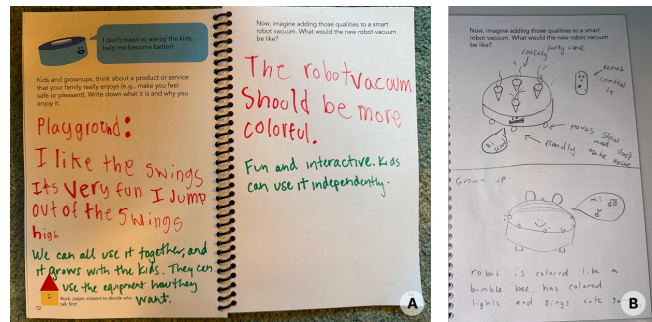 I don't mean to annoy the kids,
help me become better!
Kids and grownups, think about a product or service
that your family really enjoys (e.g., make you feel
safe or pleasant). Write down what it is and why you
enjoy it.
Playground:
I like the swings
Its very fun I Jump
out of the swings
high
We can all use it together, and
it grows with the kids. They can
use the equipment how they
want.
Rock, paper, scissors to decide who
talk first!
52
Now, imagine adding those qualities to a smart
robot vacuum. What would the new robot vacuum
be like?
The robot vacuum
Should be more
colorful.
Fun and interactive. Kids
can use it independently.
A
Now, imagine adding those qualities to a smart
robot vacuum. What would the new robot vacuum
be like?
party
remot
control
moves slow
and
Grown up:
robot is colored like a
bumble bee, has colored
lights, and sings cute
B